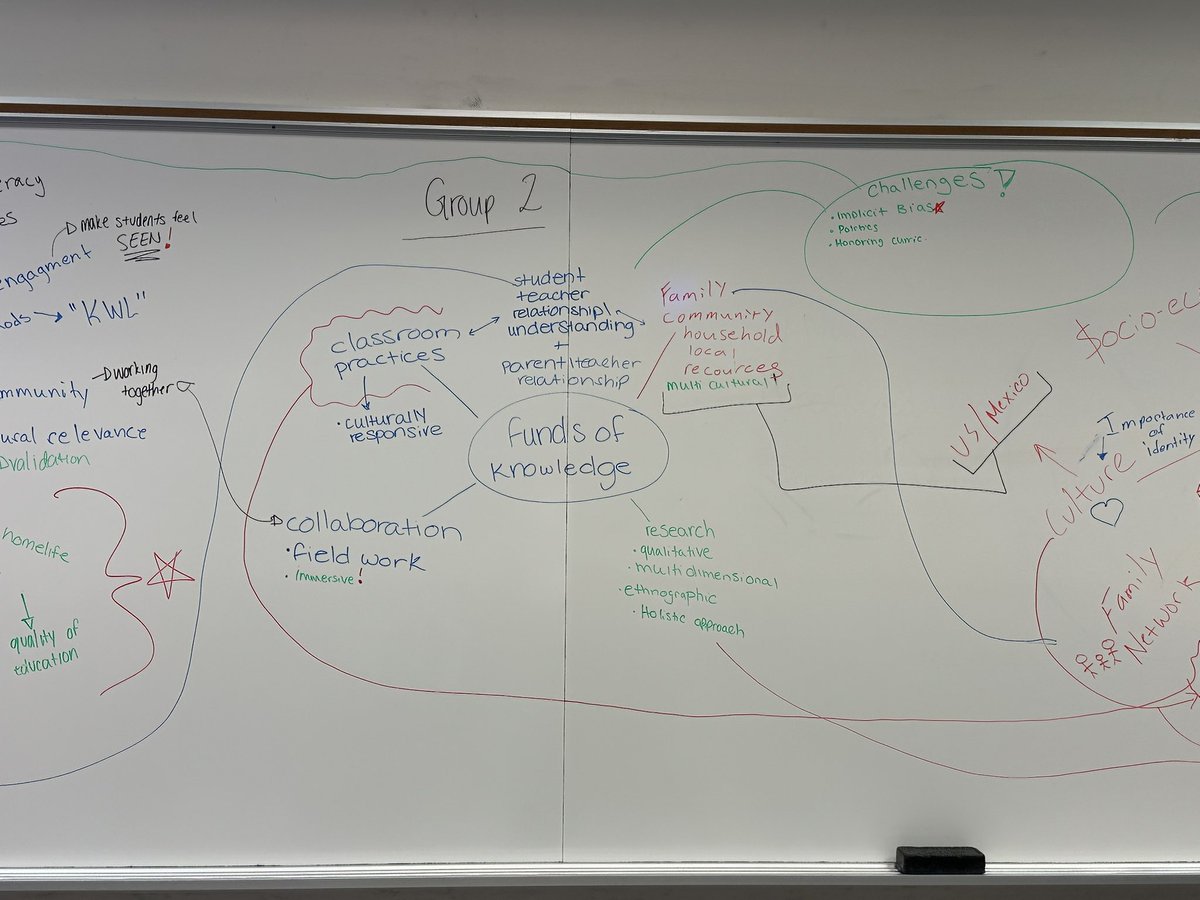 Group 2
eracy
es
make students feel
SEEN!
engagment
ods → "KWL"
mmunity
working
together
ural relevance
validation
homelife
quality of
education
student
teacher
relationship
understanding
+
Parent/teacher
relationship
classroom
practices
• culturally
responsive
Funds of
Knowledge
collaboration
• field work
• immersive!
Family
community
household
local
recources
multi cultural +
research
• qualitative
• multidimensional
• ethnographic
• Holistic approach
challenges !
• Implicit Bias
• Honoring curric.
$ocio-ec
US/Mexico
Importance
of
identity
Culture
Family
Network